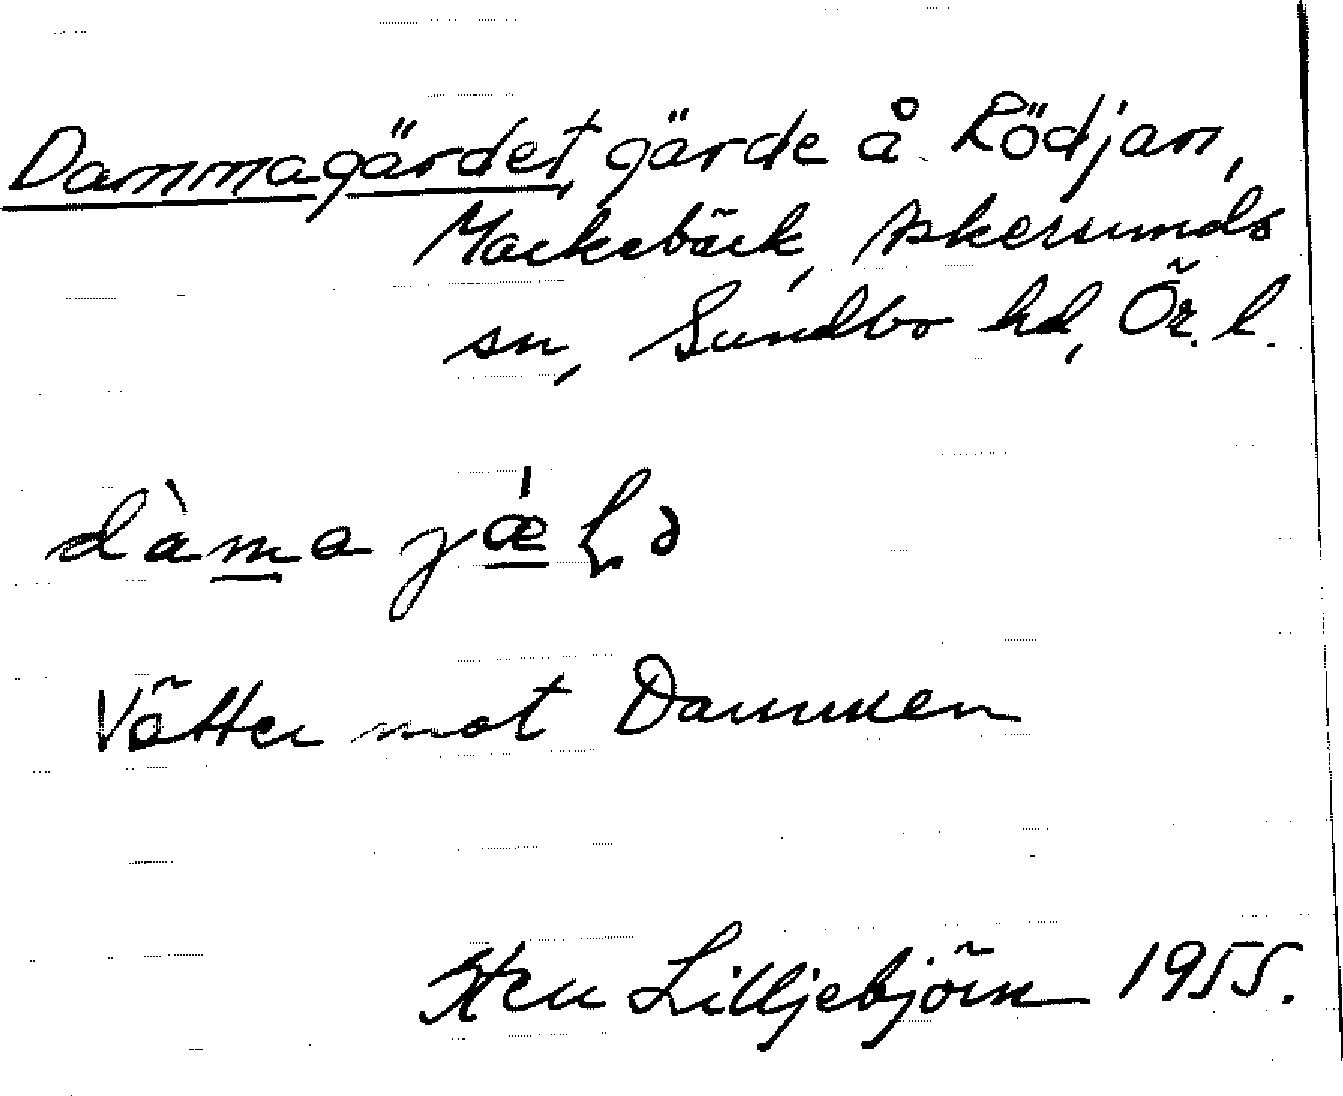 Dammagärdet, gärde å Rödjan,
Mackebäck, Askersunds
sn, Sundbo hd, Ör. l.
dàmajǽɽə
Vätter mot Dammen
Sten Lilljebjörn 1955.